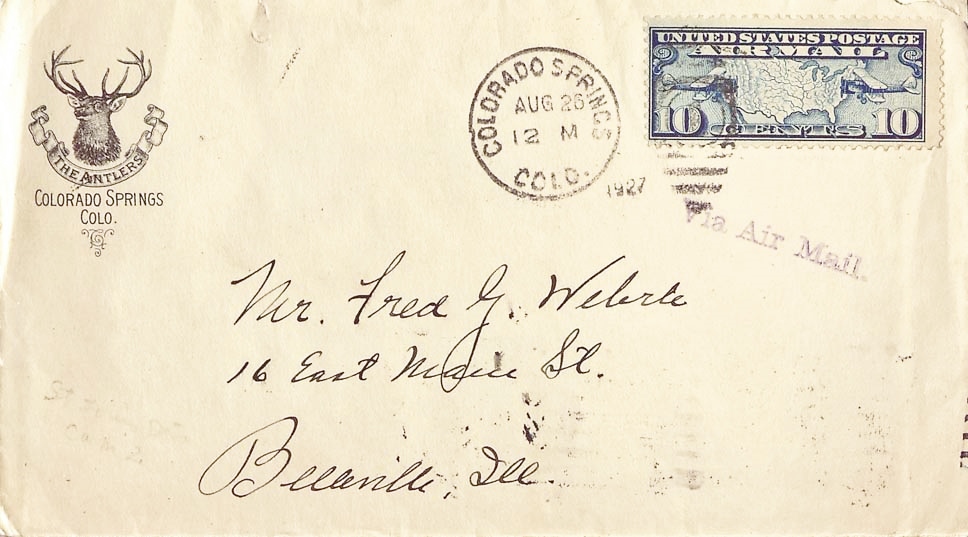 THE ANTLERS
COLORADO SPRINGS
COLO.
COLORADO SPRINGS
AUG 26
12 M
COLO.
1927
UNITED STATES POSTAGE
AIR MAIL
10 CENTS 10
Via Air Mail.
Mr. Fred G. Weberle
16 East Main St.
Belleville, Ill.